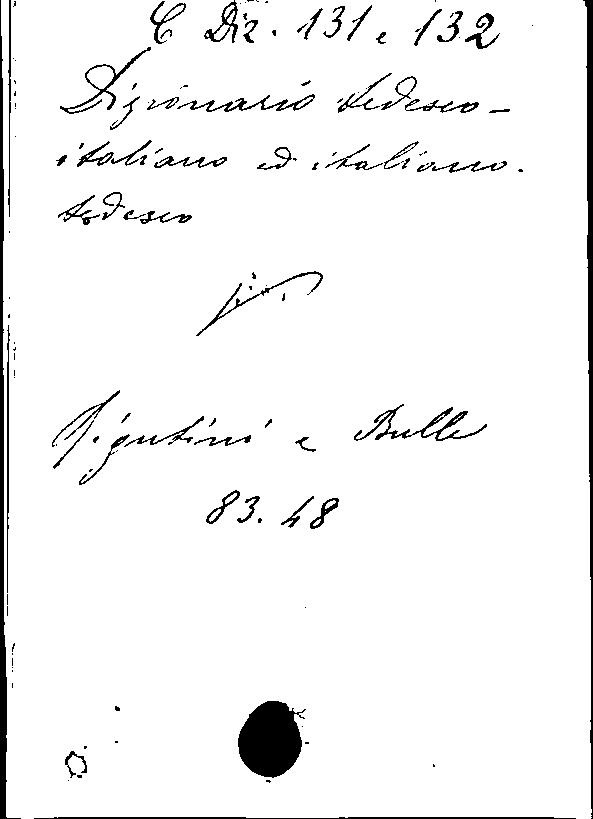 C Diz. 131 e 132
Dizionario tedesco-
italiano ed italiano.
tedesco
Rigutini e Bulle
83.48